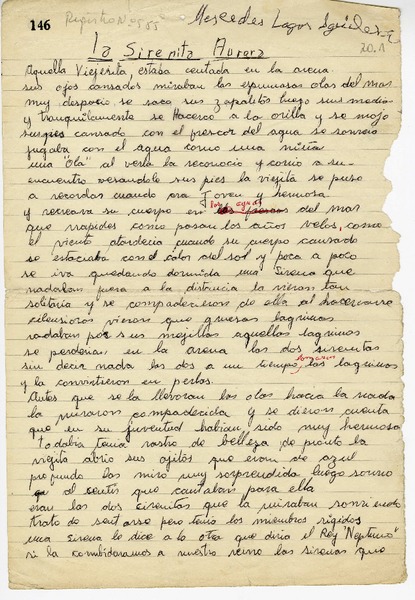 146
Registro Nº 555
Mercedes Lagos
20.1
La Sirenita Aurora
Aquella Viejesita, estaba centada en la arena
sus ojos cansados miraban las espumosas olas del mar
muy despacio se saca sus zapatitos luego sus medias
y tranquilamente se Hacercó a la orilla y se mojo
sus pies cansado con el frescor del agua se sonreio
jugaba con el agua como una niña
una "Ola" al verla la reconocio y corrio a su
encuentro vesandole sus pies la viejita se puso
a recordar cuando era Joven y hermosa
y recreava su cuerpo en las aguas del mar
que rapides como pasan los años velos, como
el viento atardecia cuando su cuerpo cansado
se estacaba con el calor del sol y poco a poco
se iva quedando dormida una Sirena que
nadaban pera a la distancia la vieron tan
solitaria y se compadecieron de ella al hacercarse
silensiosas vieron que gruesas lagrimas
rodaban por sus mejillas aquellas lagrimas
se perdian en la arena las dos sirenitas
sin decir nada las dos a un tiempo tomaron las lagrimas
y la convirtieron en perlas.
Antes que se la llevaran las olas hacia la nada
la miraron compadecida y se dieron cuenta
que en su juventud habian sido muy hermosa
todabia tenia rastro de belleza de pronto la
viejita abrio sus ojitos que eran de azul
profundo las miró muy sorprendida luego sonrio
al sentir que cantaban para ella
eran las dos sirenitas que la miraban sonriendo
trato de sentarse pero tenia los miembros rigidos
una Sirena le dice a la otra que diria el Rey "Neptuno"
si la combidaramos a nuestro reino las sirenas que